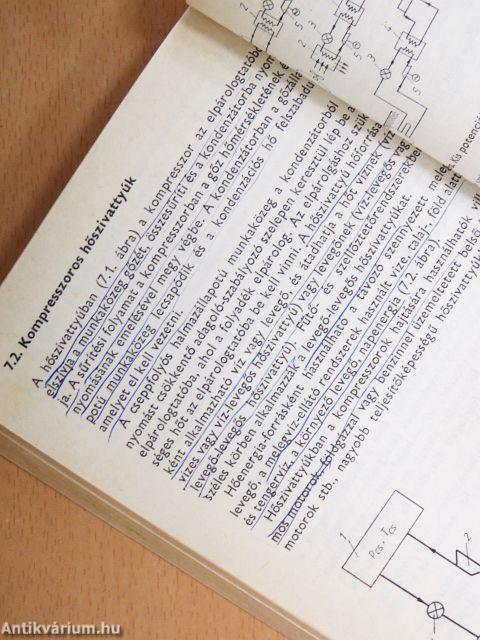 7.2. Kompresszoros hőszivattyúk
A hőszivattyúban (7.1. ábra) a kompresszor az elpárologtatóból
elszívja a munkaközeg gőzét, összesűríti és a kondenzátorba nyom-
ja. A sűrítési folyamat a kompresszorban a gőz hőmérsékletének és
nyomásának emelésével megy végbe. A kondenzátorban a gőzálla-
potú munkaközeg lecsapódik és a kondenzációs hő felszabadul
amelyet el kell vezetni.
A cseppfolyós halmazállapotú munkaközeg a kondenzátorból
nyomást csökkentő adagoló-szabályozó szelepen keresztül lép be a
elpárologtatóba, ahol a folyadék elpárolog. Az elpárolgáshoz szük
séges hőt az elpárologtatóba be kell vinni. A hőszivattyú hőforrása
ként alkalmazható víz vagy levegő, és átadhatja a hőt víznek (víz
vizes vagy víz-levegős hőszivattyú) vagy levegőnek (víz-levegős vagy
levegő-levegős hőszivattyú). Fűtő- és szellőztetőrendszerekben
széles körben alkalmazzák a levegő-levegős hőszivattyúkat.
Hőenergia-forrásként használható a távozó szennyezett meleg
levegő, a melegvízellátó rendszerek használt vize, talaj, föld alatt
és tengervíz, a környező levegő, napenergia (7.2. ábra).
Hőszivattyúkban a kompresszorok hajtására használhatók vill
mos motorok, földgázzal vagy benzinnel üzemeltetett belső
motorok stb., nagyobb teljesítőképességű hőszivattyúk
Kis potenciál
1
2
3
5
PCS, TCS
1
2
Antikvárium.hu